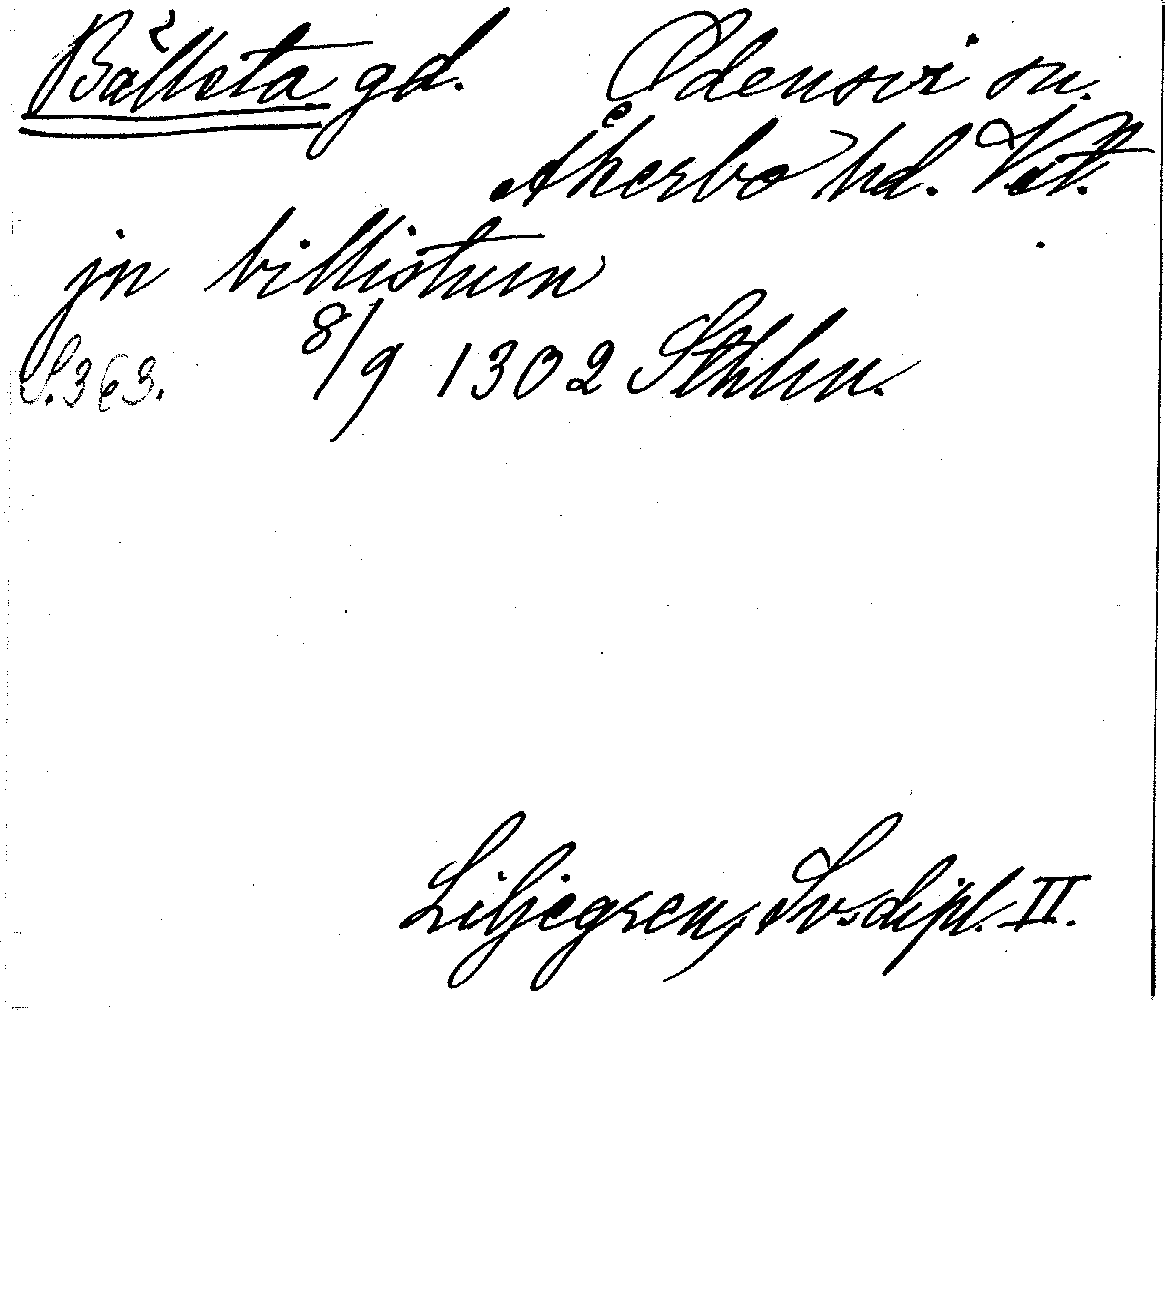 Bällsta gd. Odensvi sn.
Åkerbo hd. Vstm.
jn billistum
S. 363. 8/9 1302 Sthlm.
Liljegren, Sv. dipl. II.